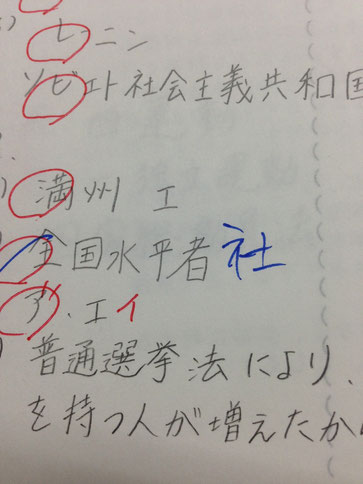 レーニン
ソビエト社会主義共和国
満州 エ
全国水平者社
ア.エイ
普通選挙法により、
を持つ人が増えたから